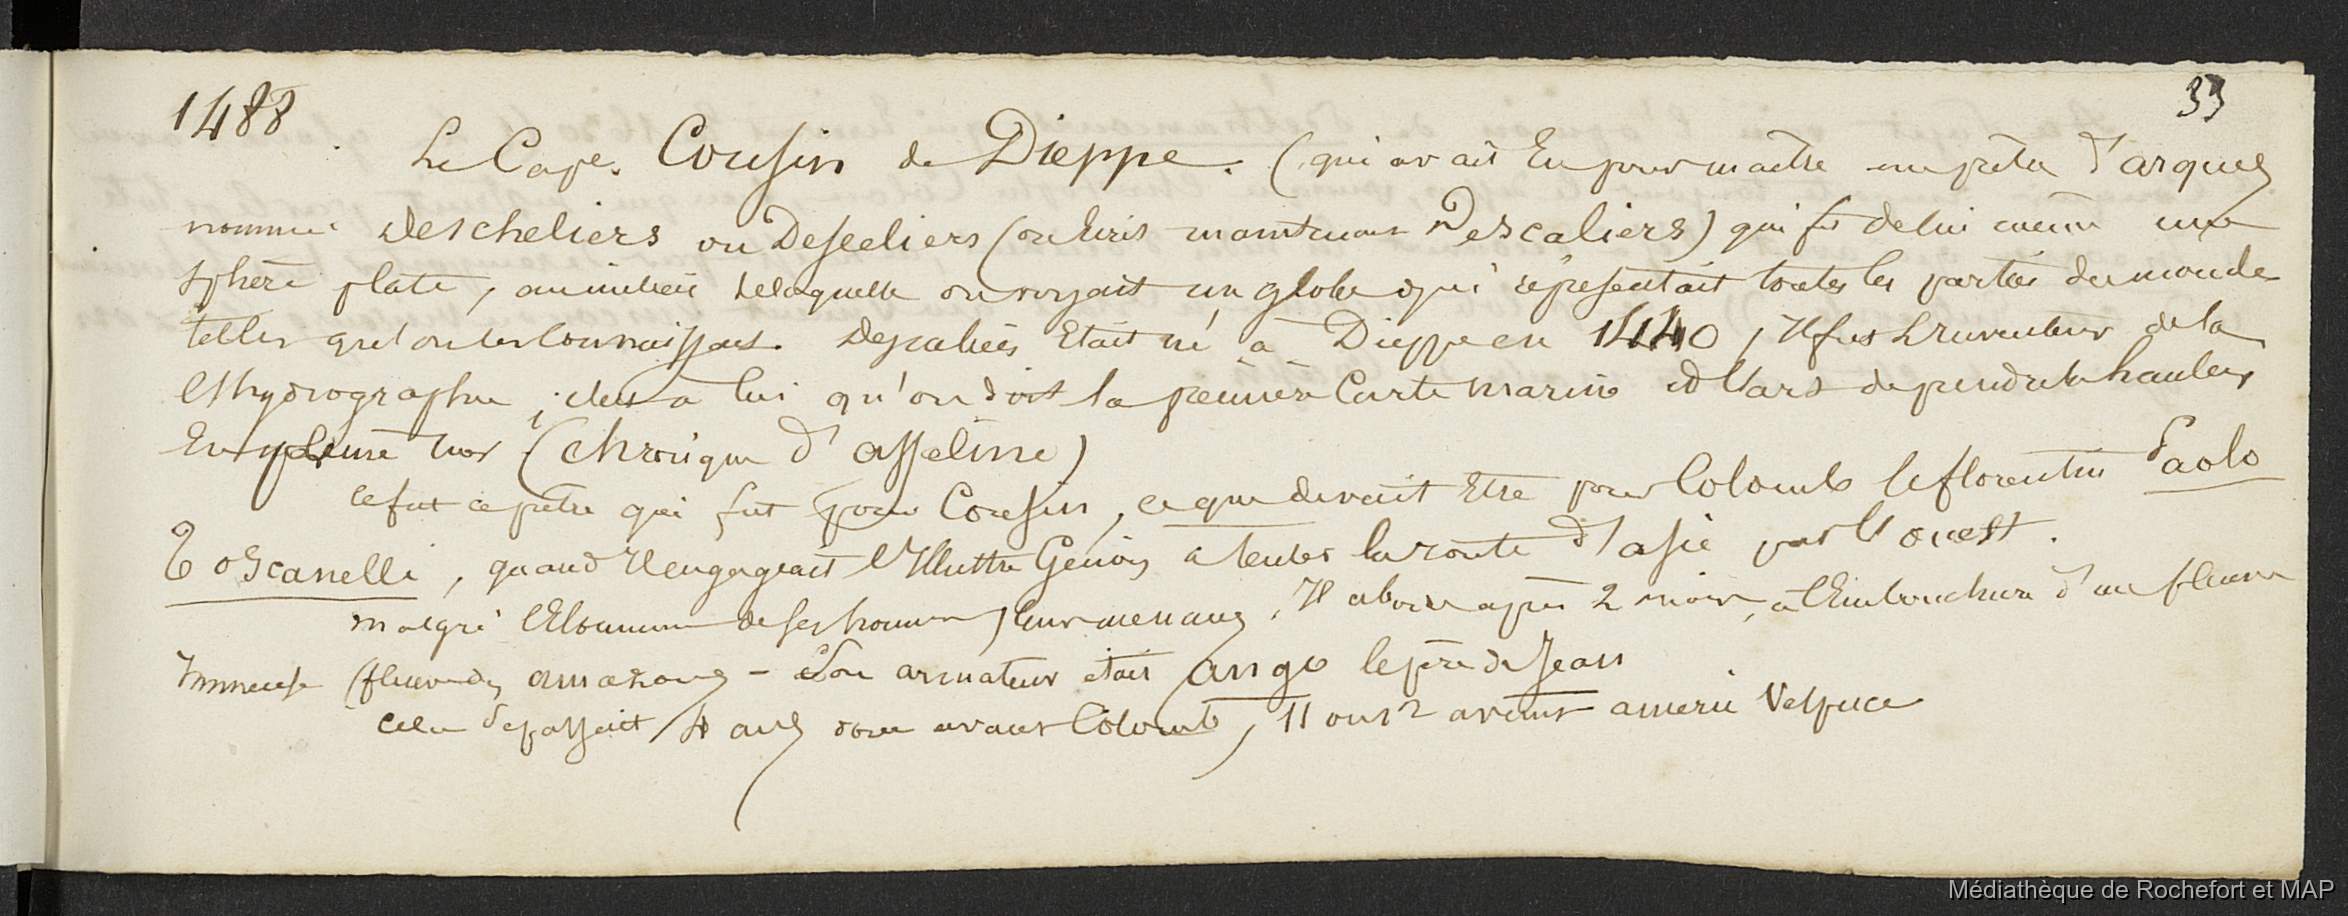 1488
33
Le Cape. Cousin de Dieppe. (qui avait Eu pour maitre un prêtre d'arques
nommé Descheliers ou Desceliers (on Ecrit maintenant Descaliers) qui fit de lui même une
sphère plate, au milieu de laquelle on voyait un globe qui représentait toutes les parties du monde
telles qu'on les connaissait. Descaliers Etait né à Dieppe en 1440, Il fut L'inventeur de la
l'hydrographie, c'est à lui qu'on doit la première Carte marine et l'art de prendre la hauteur
En pleine mer (Chronique d'asseline)
ce fut ce prêtre qui fut pour Cousin, ce que devait Etre pour Colomb le florentin Paolo
Toscanelli, quand Il engageait l'Illustre Génois à tenter la route d'asie par l'ouest.
malgré de ses hommes, leurs menaces, Il aborde après 2 mois, à l'Embouchure d'un fleuve
Immense (fleuve des amazones - Son armateur était Ango le père de Jean
cela se passait 4 ans avant Colomb, 11 ans avant americ Vespuce
Médiathèque de Rochefort et MAP